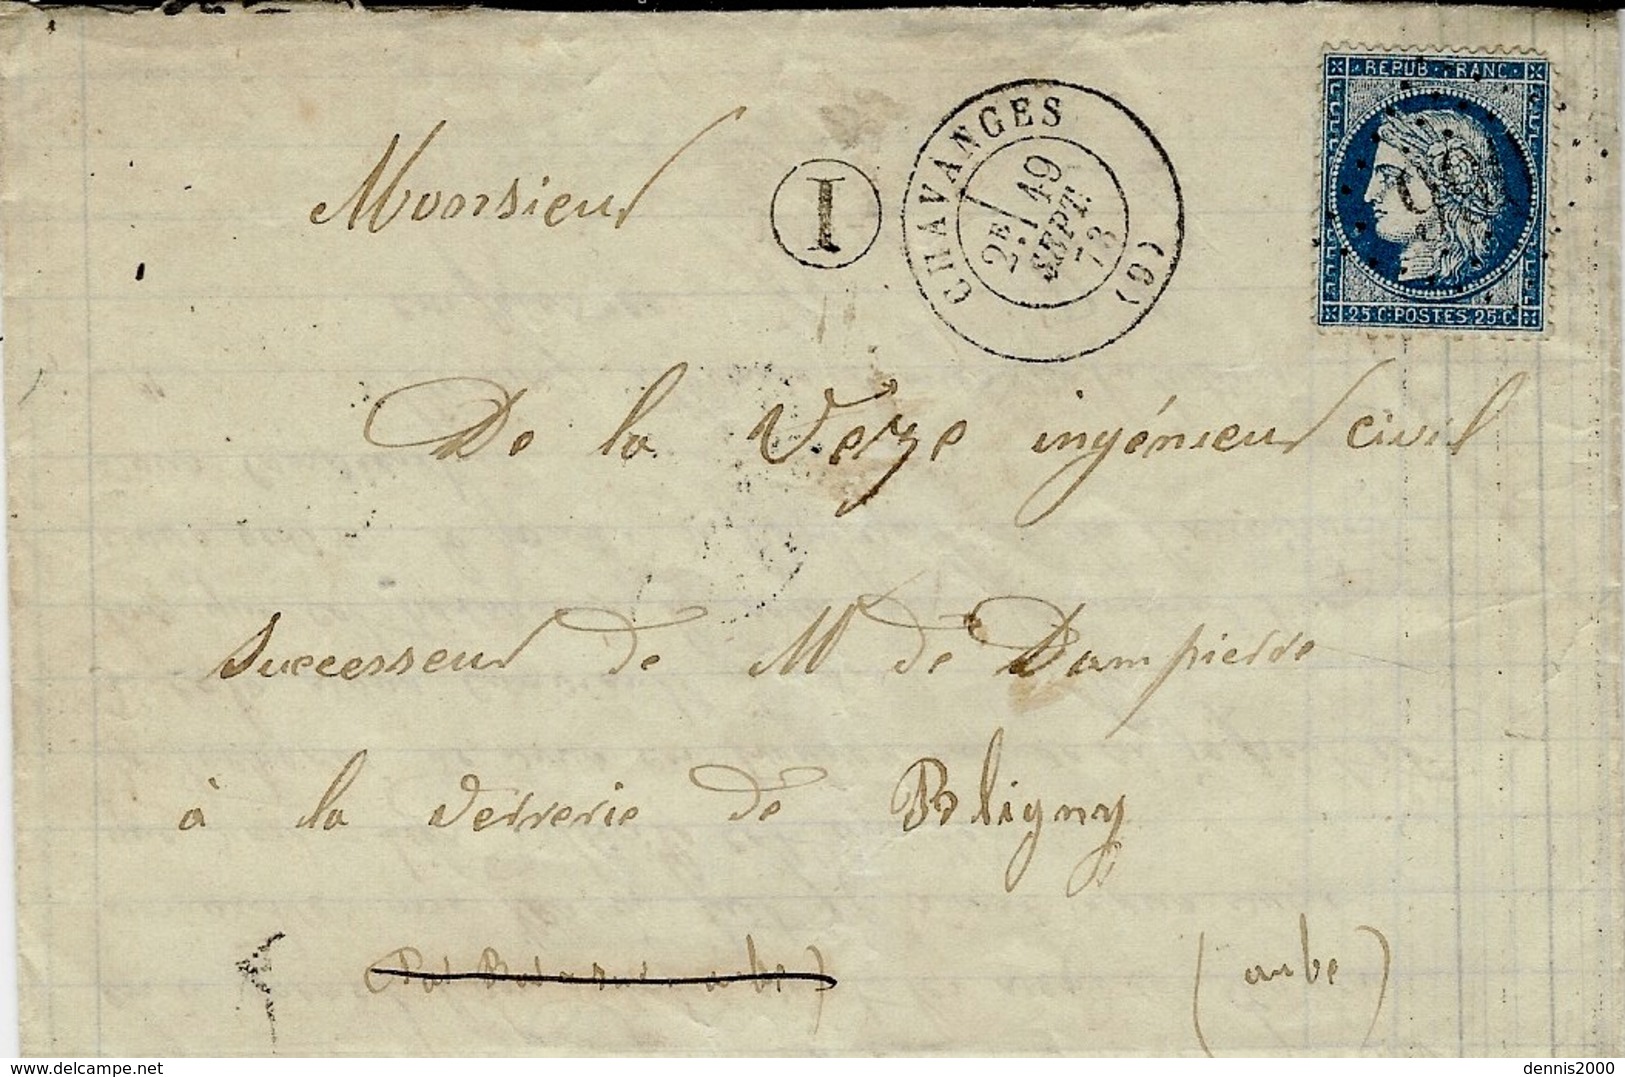 REPUB · FRANC ·
25 C · POSTES 25 C
CHAVANGES
2E / 19
SEPT.
73
(9)
I
Monsieur
De la Veze ingénieur civil
Successeur de Mr de Dampierre
à la verrerie de Bligny
(Par Bar aube)
(aube)
delcampe.net
dennis2000